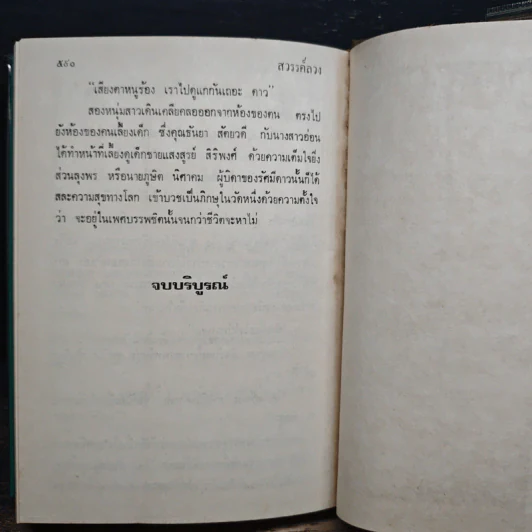 ๕๙๐ สวรรค์ลวง
"เสียงตาหนูร้อง เราไปดูแกกันเถอะ ดาว"
สองหนุ่มสาวเดินเคลียคลอออกจากห้องของตน ตรงไป
ยังห้องของคนเลี้ยงเด็ก ซึ่งคุณธันยา สัตยวดี กับนางสาวอ่อน
ได้ทำหน้าที่เลี้ยงดูเด็กชายแสงสูรย์ สิริพงศ์ ด้วยความเต็มใจยิ่ง
ส่วนลุงพร หรือนายภูษิต นิศาคม ผู้บิดาของรัศมีดาวนั้นก็ได้
สละความสุขทางโลก เข้าบวชเป็นภิกษุในวัดหนึ่งด้วยความตั้งใจ
ว่า จะอยู่ในเพศบรรพชิตนั้นจนกว่าชีวิตจะหาไม่
จบบริบูรณ์